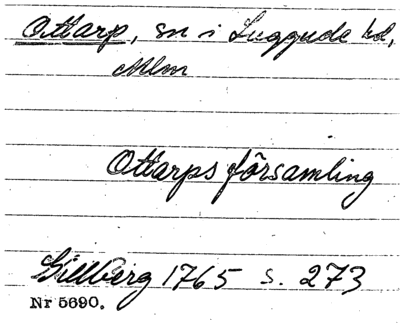 Ottarp, sn i Luggude hd,
Mlm
Ottarps församling
Gillberg 1765 s. 273
Nr 5690.